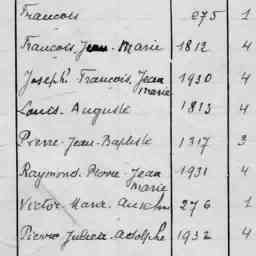 Francois 275 1
Francois Jean-Marie 1812 4
Joseph Francois Jean 1930 4
Marie
Louis-Auguste 1813 4
Pierre-Jean-Baptiste 1317 3
Raymond-Pierre-Jean 1931 4
Marie
Victor-Marie-Anselme 276 1
Pierre Julien-Adolphe 1932 4